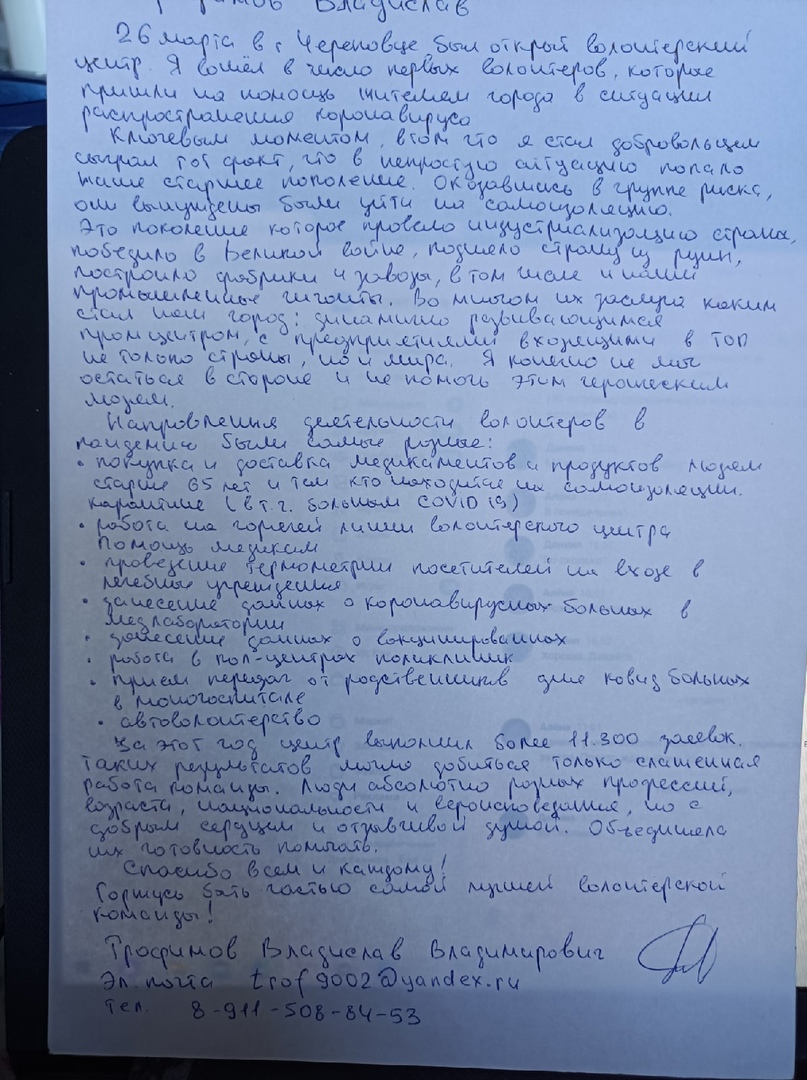 Трофимов Владислав
26 марта в г. Череповце был открыт волонтерский
центр. Я вошёл в число первых волонтеров, которые
пришли на помощь жителям города в ситуации
распространения коронавируса
Ключевым моментом, в том что я стал добровольцем
сыграл тот факт, что в непростую ситуацию попало
наше старшее поколение. Оказавшись в группе риска,
они вынуждены были уйти на самоизоляцию.
Это поколение которое провело индустриализацию страны,
победило в Великой войне, подняло страну из руин,
построило фабрики и заводы, в том числе и наши
промышленные гиганты. Во многом их заслуга каким
стал наш город: динамично развивающимся
промцентром, с предприятиями входящими в ТОП
не только страны, но и мира. Я конечно не мог
остаться в стороне и не помочь этим героическим
людям.
Направления деятельности волонтеров в
пандемию были самые разные:
• покупка и доставка медикаментов и продуктов людям
старше 65 лет и тем кто находится на самоизоляции.
карантине (в т.г. больным COVID 19)
• работа на горячей линии волонтерского центра
Помощь медикам
• проведение термометрии посетителей на входе в
лечебные учреждения
• занесение данных о коронавирусных больных в
медлаборатории
• занесение данных о вакцинированных
• работа в кол-центрах поликлиник
• прием передач от родственников для ковид больных
в моногоспитале
• автоволонтерство
За этот год центр выполнил более 11.300 заявок.
Таких результатов можно добиться только слаженная
работа команды. Люди абсолютно разных профессий,
возраста, национальности и вероисповедания, но с
добрым сердцем и отзывчивой душой. Объединила
их готовность помогать.
Спасибо всем и каждому!
Горжусь быть частью самой лучшей волонтерской
команды!
Трофимов Владислав Владимирович
Эл. почта trof9002@yandex.ru
Тел. 8-911-508-84-53